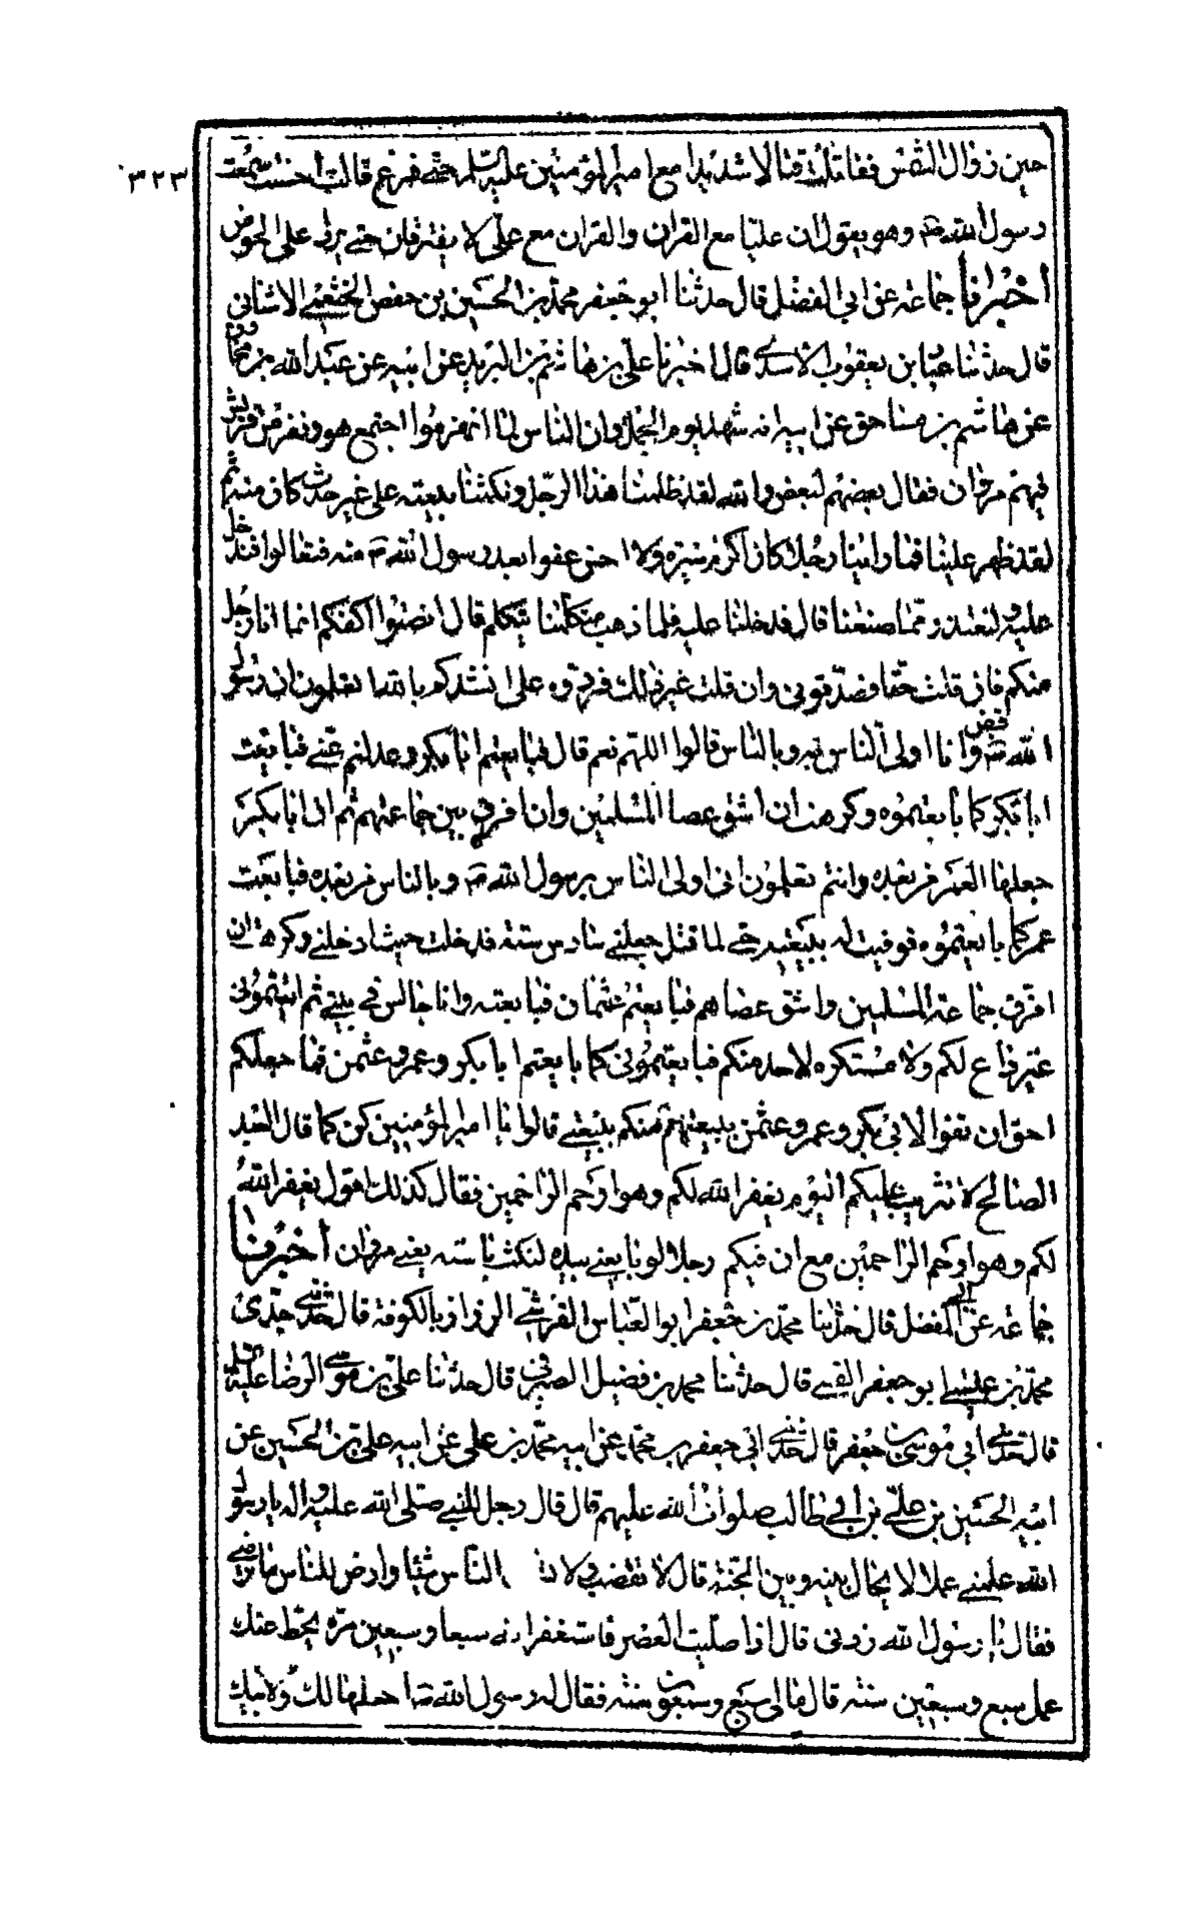 ٣٢٣
حين زوال الشمس فقاتلت قتالا شديدا مع امير المؤمنين عليه السلم حتى فرغ قالت احسنت سمعت
رسول الله ص وهو يقول ان عليا مع القران والقران مع علي لا يفترقان حتى يردا علي الحوض
أخبرنا جماعة عن ابي المفضل قال حدثنا ابو جعفر محمد بن الحسين بن حفص الخثعمي الاشناني
قال حدثنا عباد بن يعقوب الاسدي قال اخبرنا علي بن هاشم بن البريد عن ابيه عن عبد الله بن مخارق
عن هاشم بن مساحق عن ابيه انه شهد يوم الجمل وان الناس لما انهزموا اجتمع هو ونفر من قريش
فيهم مروان فقال بعضهم لبعض والله لقد ظلمنا هذا الرجل ونكثنا بيعته على غير حدث كان منه ثم
لقد ظهر علينا فما راينا رجلا كان اكرم سيرة ولا احسن عفوا بعد رسول الله ص منه فتعالوا فندخل
عليه ولنعتذرن مما صنعنا قال فدخلنا عليه فلما ذهب متكلمنا يتكلم قال انصتوا اكفكم انما انا رجل
منكم فان قلت حقا فصدقوني وان قلت غير ذلك فردوه علي انشدكم بالله اتعلمون ان رسول
الله ص قبض وانا اولى الناس به وبالناس قالوا اللهم نعم قال فبايعتم ابا بكر وعدلتم عني فبايعت
ابا بكر كما بايعتموه وكرهت ان اشق عصا المسلمين وان افرق بين جماعتهم ثم ان ابا بكر
جعلها لعمر من بعده وانتم تعلمون اني اولى الناس برسول الله ص وبالناس من بعده فبايعت
عمر كما بايعتموه فوفيت له ببيعته حتى لما قتل جعلني سادس ستة فدخلت حيث ادخلني وكرهت ان
افرق جماعة المسلمين واشق عصاهم فبايعتم عثمان فبايعته وانا جالس في بيتي ثم اتيتموني
غير داع لكم ولا مستكره لاحد منكم فبايعتموني كما بايعتم ابا بكر وعمر وعثمن فما جعلكم
احق ان تفوا لابي بكر وعمر وعثمن ببيعتهم منكم ببيعتي قالوا يا امير المؤمنين كن كما قال العبد
الصالح لا تثريب عليكم اليوم يغفر الله لكم وهو ارحم الراحمين فقال كذلك اقول يغفر الله
لكم وهو ارحم الراحمين مع ان فيكم رجلا لو بايعني بيده لنكث باسته يعني مروان أخبرنا
جماعة عن ابي المفضل قال حدثنا محمد بن جعفر ابو العباس القرشي الرزاز بالكوفة قال حدثني جدي
محمد بن عيسى ابو جعفر القيسي قال حدثنا محمد بن فضيل الصيرفي قال حدثنا علي بن موسى الرضا عليه السلم
قال حدثني ابي موسى بن جعفر قال حدثني ابي جعفر بن محمد عن ابيه محمد بن علي عن ابيه علي بن الحسين عن
ابيه الحسين بن علي بن ابي طالب صلوات الله عليهم قال قال رجل للنبي صلى الله عليه واله يا رسول
الله علمني عملا لا يحال بينه وبين الجنة قال لا تغضب ولا الناس شيئا وارض للناس ما ترضى
فقال يا رسول الله زدني قال اذا صليت العصر فاستغفر الله سبعا وسبعين مرة يحط عنك
عمل سبع وسبعين سنة قال مالي سبع وسبعون سنة فقال له رسول الله ص اجعلها لك ولابيك